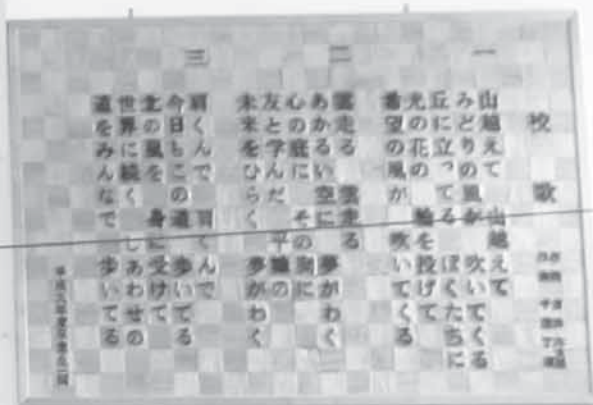 校歌
一
山越えて 山越えて
みどりの風が 吹いてくる
丘に立ってる ぼくたちに
光の花の 輪を投げて
希望の風が 吹いてくる
二
雲走る 雲走る
あかるい空に 夢がわく
心の底に その胸に
友と学んだ 平
未来をひらく 夢がわく
三
肩くんで 肩くんで
今日もこの道 歩いてる
北の風を 身に受けて
世界に続く しあわせの
道をみんなで 歩いてる